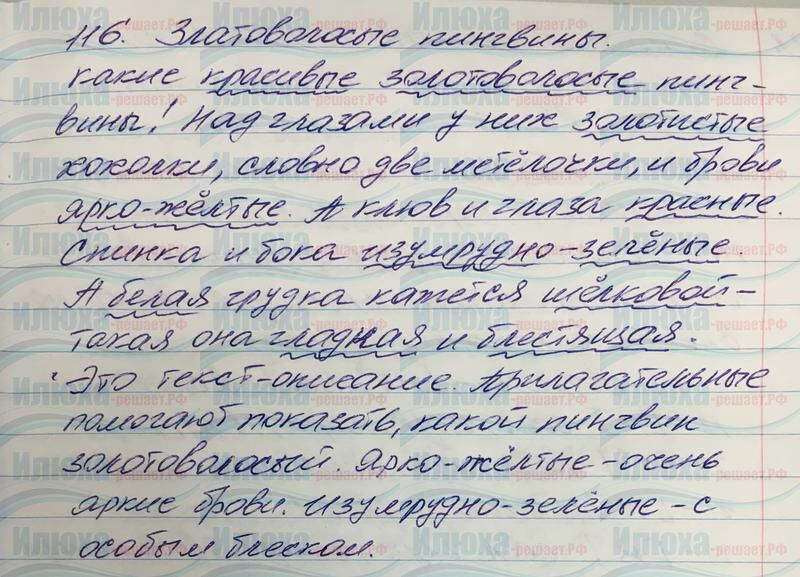 116. Златоволосые пингвины.
Какие красивые золотоволосые пинг-
вины! Над глазами у них золотистые
хохолки, словно две метёлочки, и брови
ярко-жёлтые. А клюв и глаза красные.
Спинка и бока изумрудно-зелёные.
А белая грудка кажется шёлковой -
такая она гладкая и блестящая.
Это текст-описание. Прилагательные
помогают показать, какой пингвин
золотоволосый. Ярко-жёлтые - очень
яркие брови. Изумрудно-зелёные - с
особым блеском.